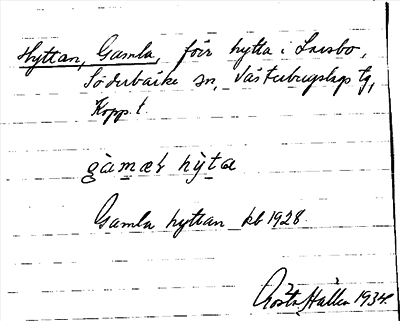 Hyttan, Gamla, förr hytta i Larsbo,
Söderbärke sn, Västerbergslags tg,
Kopp. l.
gàmæɫ hỳta
Gamla hyttan kb 1928.
Gösta Hallén 1934.